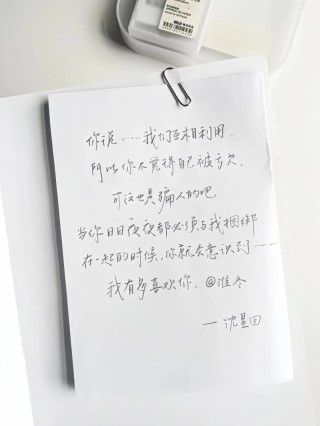 你说……我们互相利用,
所以你不觉得自己被亏欠.
可这也是骗人的吧
当你日日夜夜都必须与我捆绑
在一起的时候,你就会意识到——
我有多喜欢你. @淮冬
——沈星回